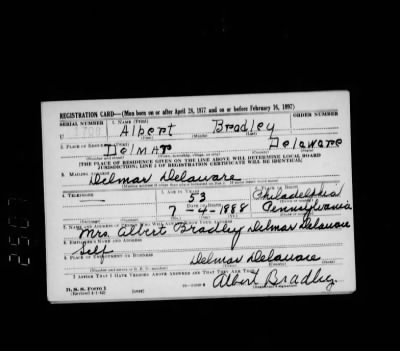 REGISTRATION CARD—(Men born on or after April 28, 1877 and on or before February 16, 1897)
SERIAL NUMBER 1. NAME (Print) ORDER NUMBER
U Albert Bradley
(First) (Middle) (Last)
2. PLACE OF RESIDENCE (Print)
Delmar Delaware
(Number and street) (Town, township, village, or city) (County) (State)
[THE PLACE OF RESIDENCE GIVEN ON THE LINE ABOVE WILL DETERMINE LOCAL BOARD
JURISDICTION; LINE 2 OF REGISTRATION CERTIFICATE WILL BE IDENTICAL]
3. MAILING ADDRESS
Delmar Delaware
4. TELEPHONE 5. AGE IN YEARS 6. PLACE OF BIRTH
53 Philadelphia
DATE OF BIRTH
7-4-1888 Pennsylvania
7. NAME AND ADDRESS OF PERSON WHO WILL ALWAYS KNOW YOUR ADDRESS
Mrs. Albert Bradley Delmar Delaware
8. EMPLOYER'S NAME AND ADDRESS
Self
9. PLACE OF EMPLOYMENT OR BUSINESS
Delmar Delaware
I AFFIRM THAT I HAVE VERIFIED ABOVE ANSWERS AND THAT THEY ARE TRUE.
D. S. S. Form 1
Albert Bradley